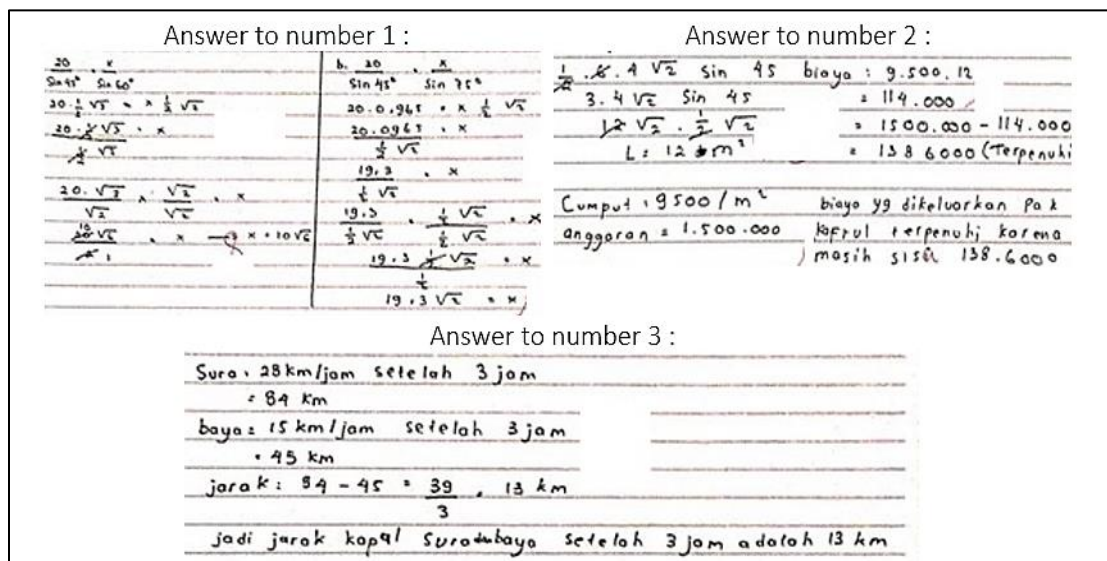 Answer to number 1 :
20/Sin 45° = x/Sin 60°
20 . 1/2 √3 = x 1/2 √2
20 . 1/2 √3 / 1/2 √2 = x
20 . √3 / √2 × √2 / √2 = x
10 √6 / 1 = x → x = 10 √6
b. 20/Sin 45° = x/Sin 75°
20 . 0,965 = x 1/2 √2
20 . 0965 / 1/2 √2 = x
19,3 / 1/2 √2 = x
19,3 / 1/2 √2 . 1/2 √2 / 1/2 √2 = x
19,3 1/2 √2 / 1/2 = x
19,3 √2 = x
Answer to number 2 :
1/2 . 6 . 4 √2 Sin 45
3 . 4 √2 Sin 45
12 √2 . 1/2 √2
L = 12 m²
biaya : 9.500 . 12
= 114.000
= 1500.000 - 114.000
= 138 6000 (Terpenuhi
Cumput : 9500 / m²
anggaran = 1.500.000
biaya yg dikeluarkan Pak
terpenuhi karena
masih sisa 138.6000
Answer to number 3 :
Sura : 28 km/jam setelah 3 jam
= 84 km
baya = 15 km/jam setelah 3 jam
= 45 km
jarak : 84 - 45 = 39/3 = 13 km
jadi jarak kapal Sura baya setelah 3 jam adalah 13 km